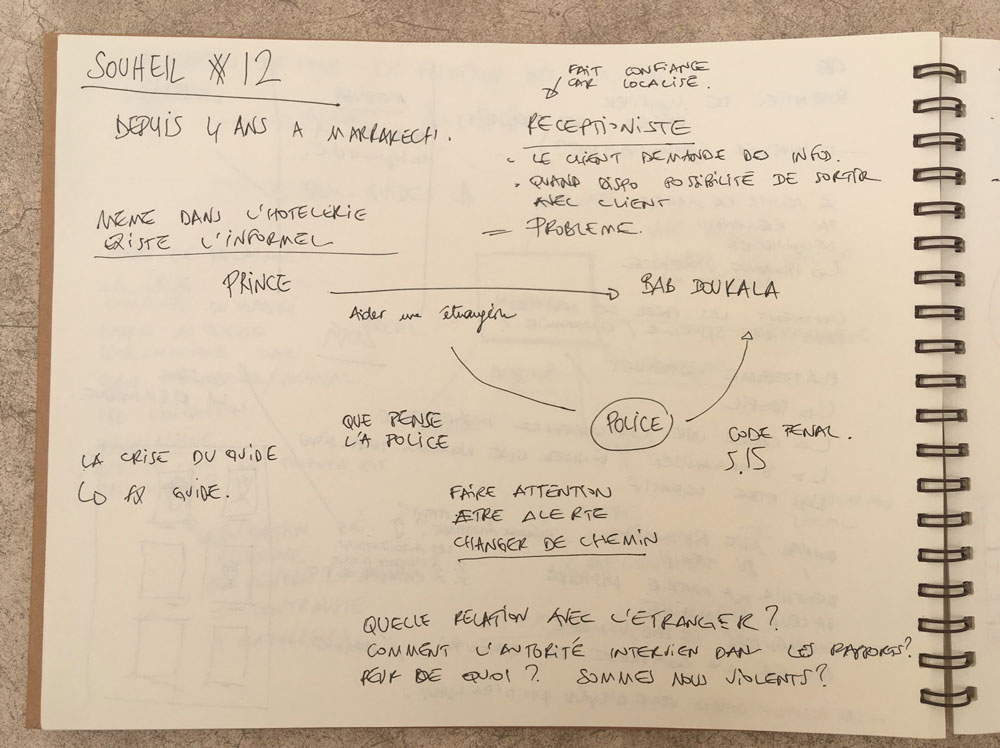 SOUHEIL # 12
DEPUIS 4 ANS A MARRAKECH.
FAIT CONFIANCE
CAR LOCALISÉ.
RECEPTIONISTE
. LE CLIENT DEMANDE DES INFOS.
. QUAND DISPO POSSIBILITÉ DE SORTIR
AVEC CLIENT
= PROBLEME.
MEME DANS L'HOTELERIE
EXISTE L'INFORMEL
PRINCE → BAB DOUKALA
Aider une étrangère
POLICE
CODE PENAL.
5.15
QUE PENSE
L'A POLICE
LA CRISE DU GUIDE
GUIDE.
FAIRE ATTENTION
ÆTRE ALERTE
CHANGER DE CHEMIN
QUELLE RELATION AVEC L'ETRANGER?
COMMENT L'AUTORITÉ INTERVIEN DANS LES RAPPORTS?
PEUR DE QUOI? SOMMES NOUS VIOLENTS?